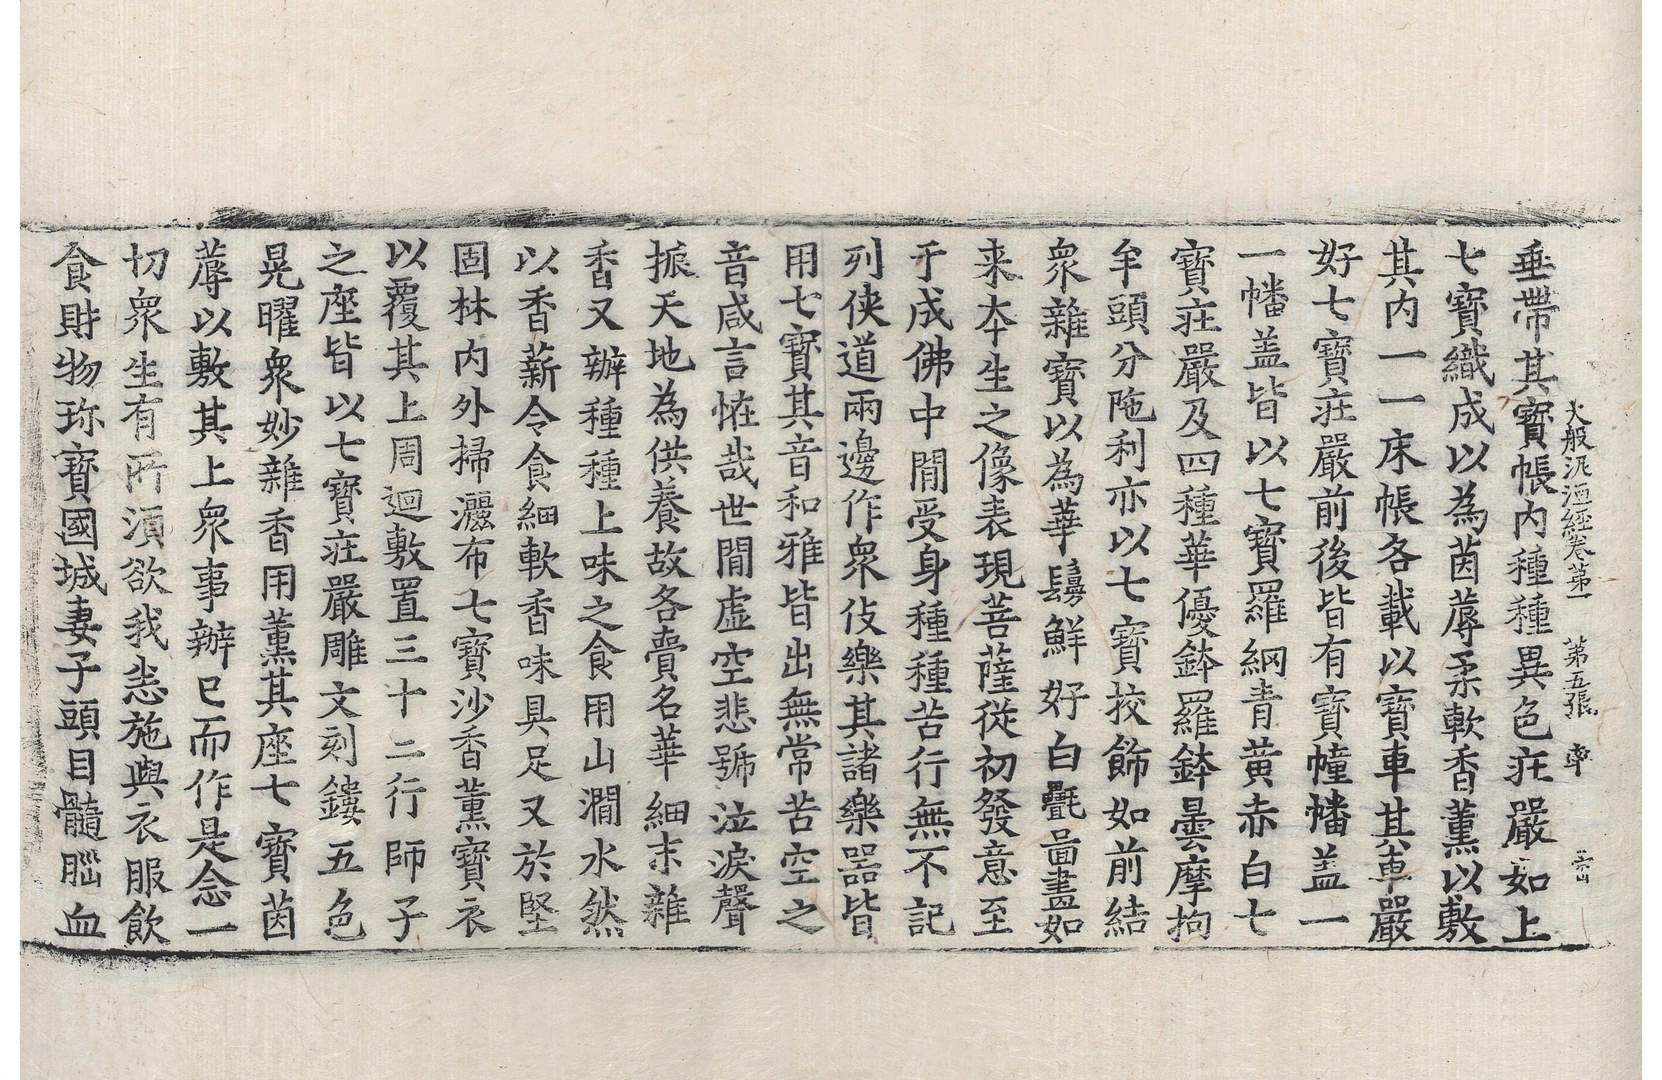 大般泥洹經卷第一　第五張　率
垂帶其寶帳内種種異色荘嚴如上
七寶織成以為茵蓐柔軟香薫以敷
其内一一床帳各載以寶車其車嚴
好七寶荘嚴前後皆有寶幢幡盖一
一幡盖皆以七寶羅網青黄赤白七
寶荘嚴及四種華優鉢羅鉢曇摩拘
牟頭分陁利亦以七寶挍飾如前結
衆雜寶以為華鬘鮮好白㲲啚畫如
来夲生之像表現菩薩從初發意至
于成佛中閒受身種種苦行無不記
列俠道兩邊作衆伎樂其諸樂器皆
用七寶其音和雅皆出無常苦空之
音咸言恠哉世閒虛空悲號泣淚聲
振天地為供養故各賷名華細末雜
香又辦種種上味之食用山澗水然
以香薪令食細軟香味具足又於堅
固林内外掃灑布七寶沙香薫寶衣
以覆其上周迴敷置三十二行師子
之座皆以七寶荘嚴雕文刻鏤五色
晃曜衆妙雜香用薫其座七寶茵
蓐以敷其上衆事辦已而作是念一
切衆生有所湏欲我悉施與衣服飲
食財物珎寶國城妻子頭目髓腦血